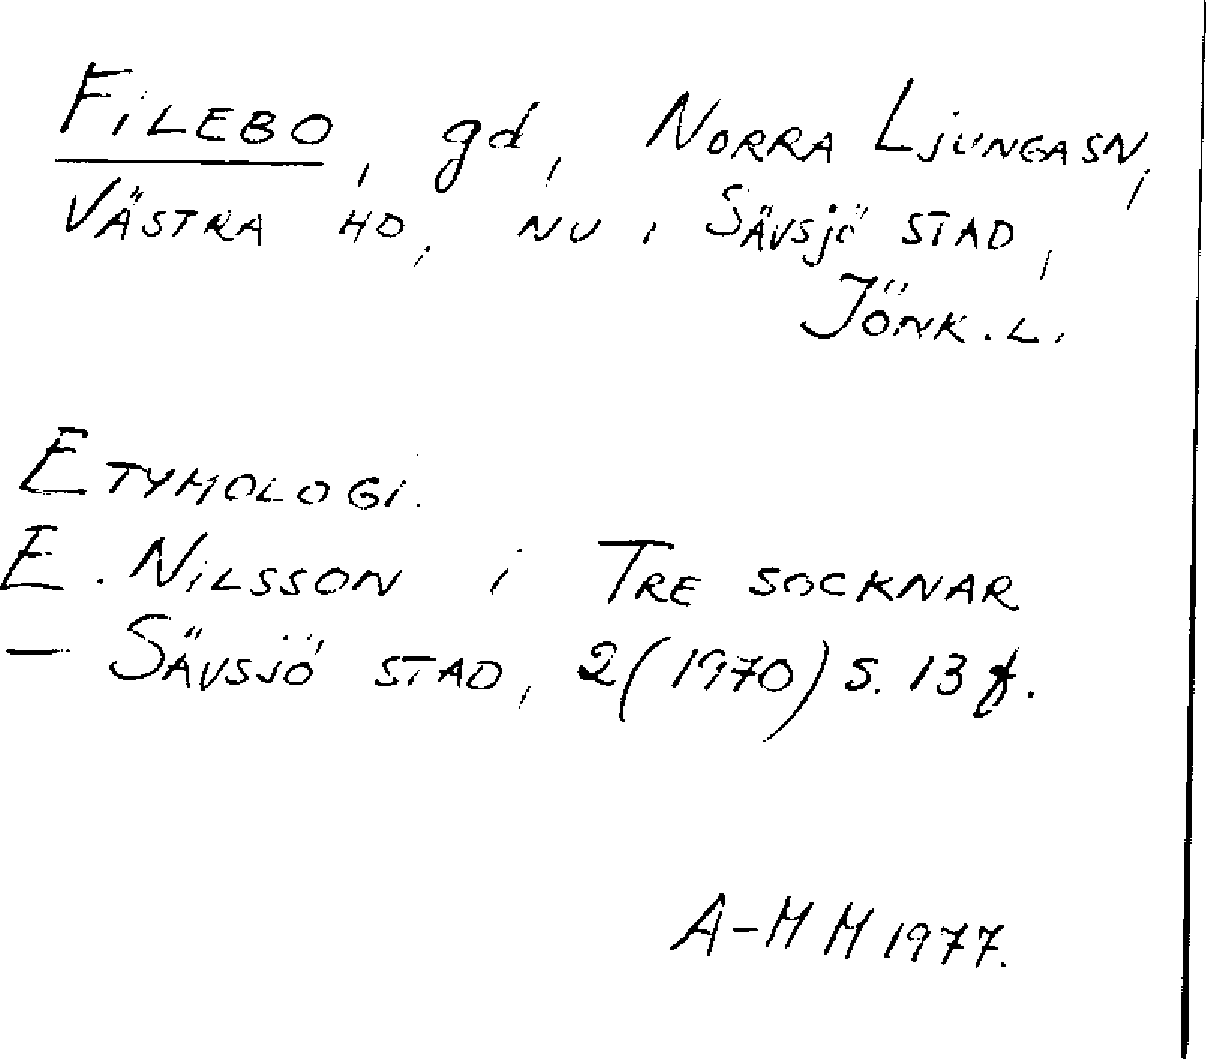 FILEBO, gd, NORRA LJUNGA SN,
VÄSTRA HD, NU I SÄVSJÖ STAD,
JÖNK. L.
ETYMOLOGI.
E. NILSSON i TRE SOCKNAR
– SÄVSJÖ STAD, 2(1970) S. 13 f.
A-MM 1977.